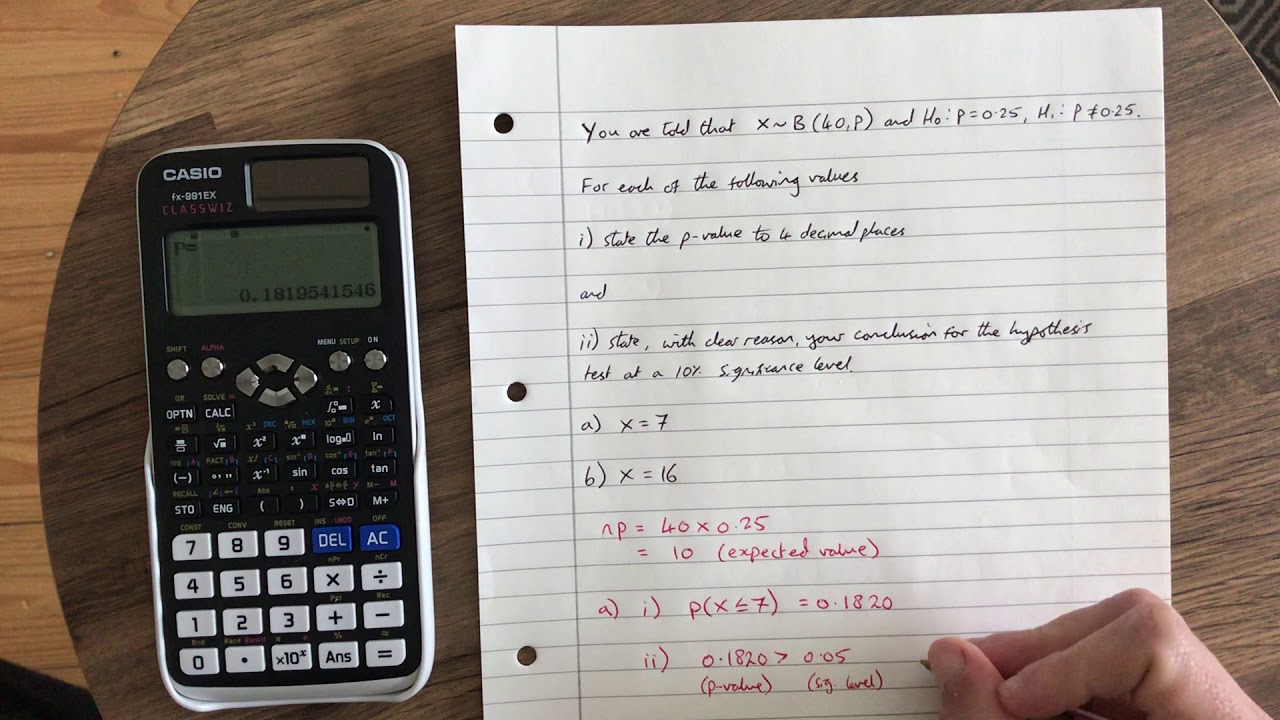 CASIO
fx-991EX
CLASSWIZ
P=
0.1819541546
SHIFT ALPHA MENU SETUP ON
OPTN CALC
SOLVE =
(−) sin cos tan
STO ENG ( ) S⇔D M+
RECALL
CONST CONV RESET INS UNDO OFF
7 8 9 DEL AC
nPr nCr
4 5 6 × ÷
Pol Rec
1 2 3 + −
Rnd Ran# RanInt π e % ≈
0 . ×10ˣ Ans =
You are told that X ~ B (40, P) and H₀ : P = 0.25, H₁ : P ≠ 0.25.
For each of the following values
i) state the p-value to 4 decimal places
and
ii) state, with clear reason, your conclusion for the hypothesis
test at a 10% significance level.
a) x = 7
b) x = 16
np = 40 × 0.25
= 10 (expected value)
a) i) P(X ≤ 7) = 0.1820
ii) 0.1820 > 0.05
(p-value) (sig. level)